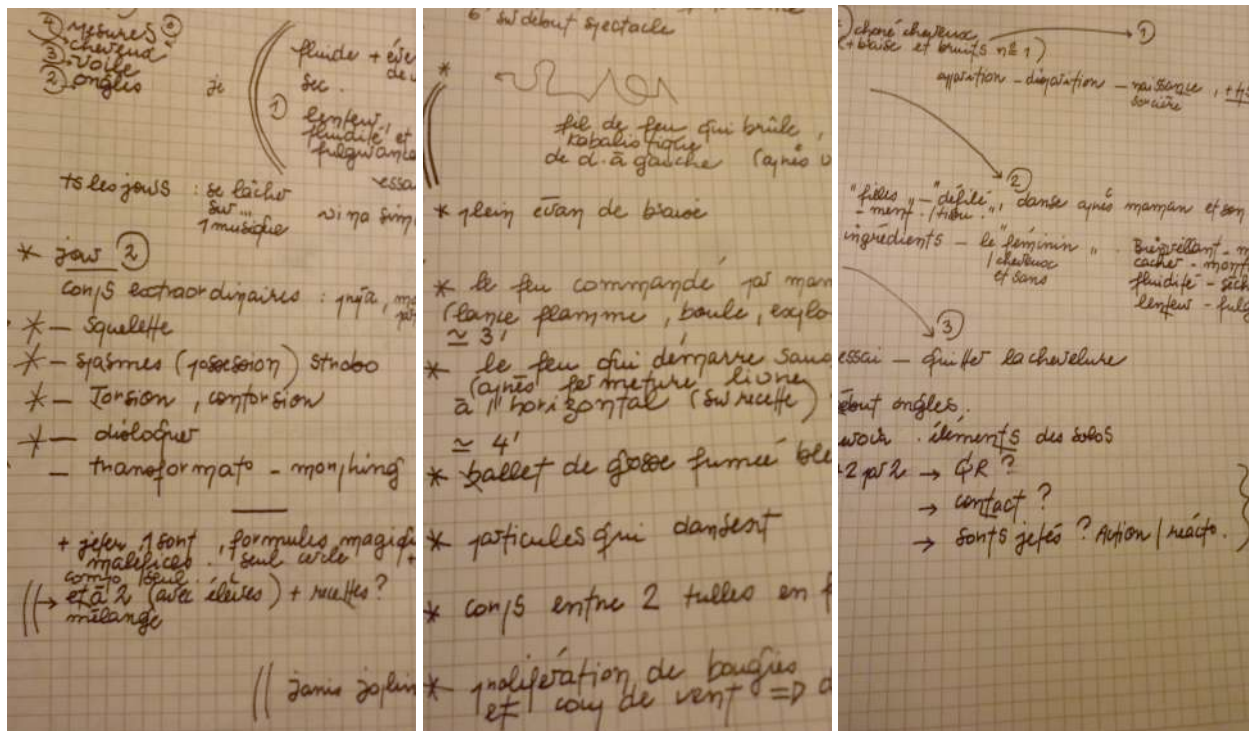 ④ mesures
① cheveux
③ voile
② ongles
je
①
fluide +
sec.
lenteur,
fluidité et
fulgurance
ts les jours : se lâcher
sur...
1 musique
* jour ②
corps extraordinaires :
* - squelette
* - spasmes (possession) strobo
* - Torsion, contorsion
* - dialoguer
- transformato - morphing
+ jeter 1 sort, formules magiq
maléfices. seul cercle
compo / seul.
→ et à 2 (avec élèves) + recettes ?
mélange
janis joplin
6' sur début spectacle
*
fil de feu qui brûle,
Kabalistique
de d. à gauche (après
* plein écran de braise
* le feu commandé par mam
(lance flamme, boule, explo
≃ 3'
* le feu qui démarre sans
(après fermeture livre
à l'horizontal (sur recette)
≃ 4'
* ballet de grosse fumée ble
* particules qui dansent
* corps entre 2 tulles en f
* prolifération de bougies
et coup de vent =>
cheveux
(+ braise et bruits n° 1)
①
apparition - disparition - naissance,
sorcière
②
"filles" - "défilé", danse après maman et son
- ment.
ingrédients - le "féminin". Bienveillant - m
/ cheveux
et sans
cacher - mont
fluidité - séch
lenteur - fulg
③
essai - quitter la chevelure
début ongles.
. éléments des solos
2 par 2 → QR ?
→ contact ?
→ sorts jetés ? Action / réacto.